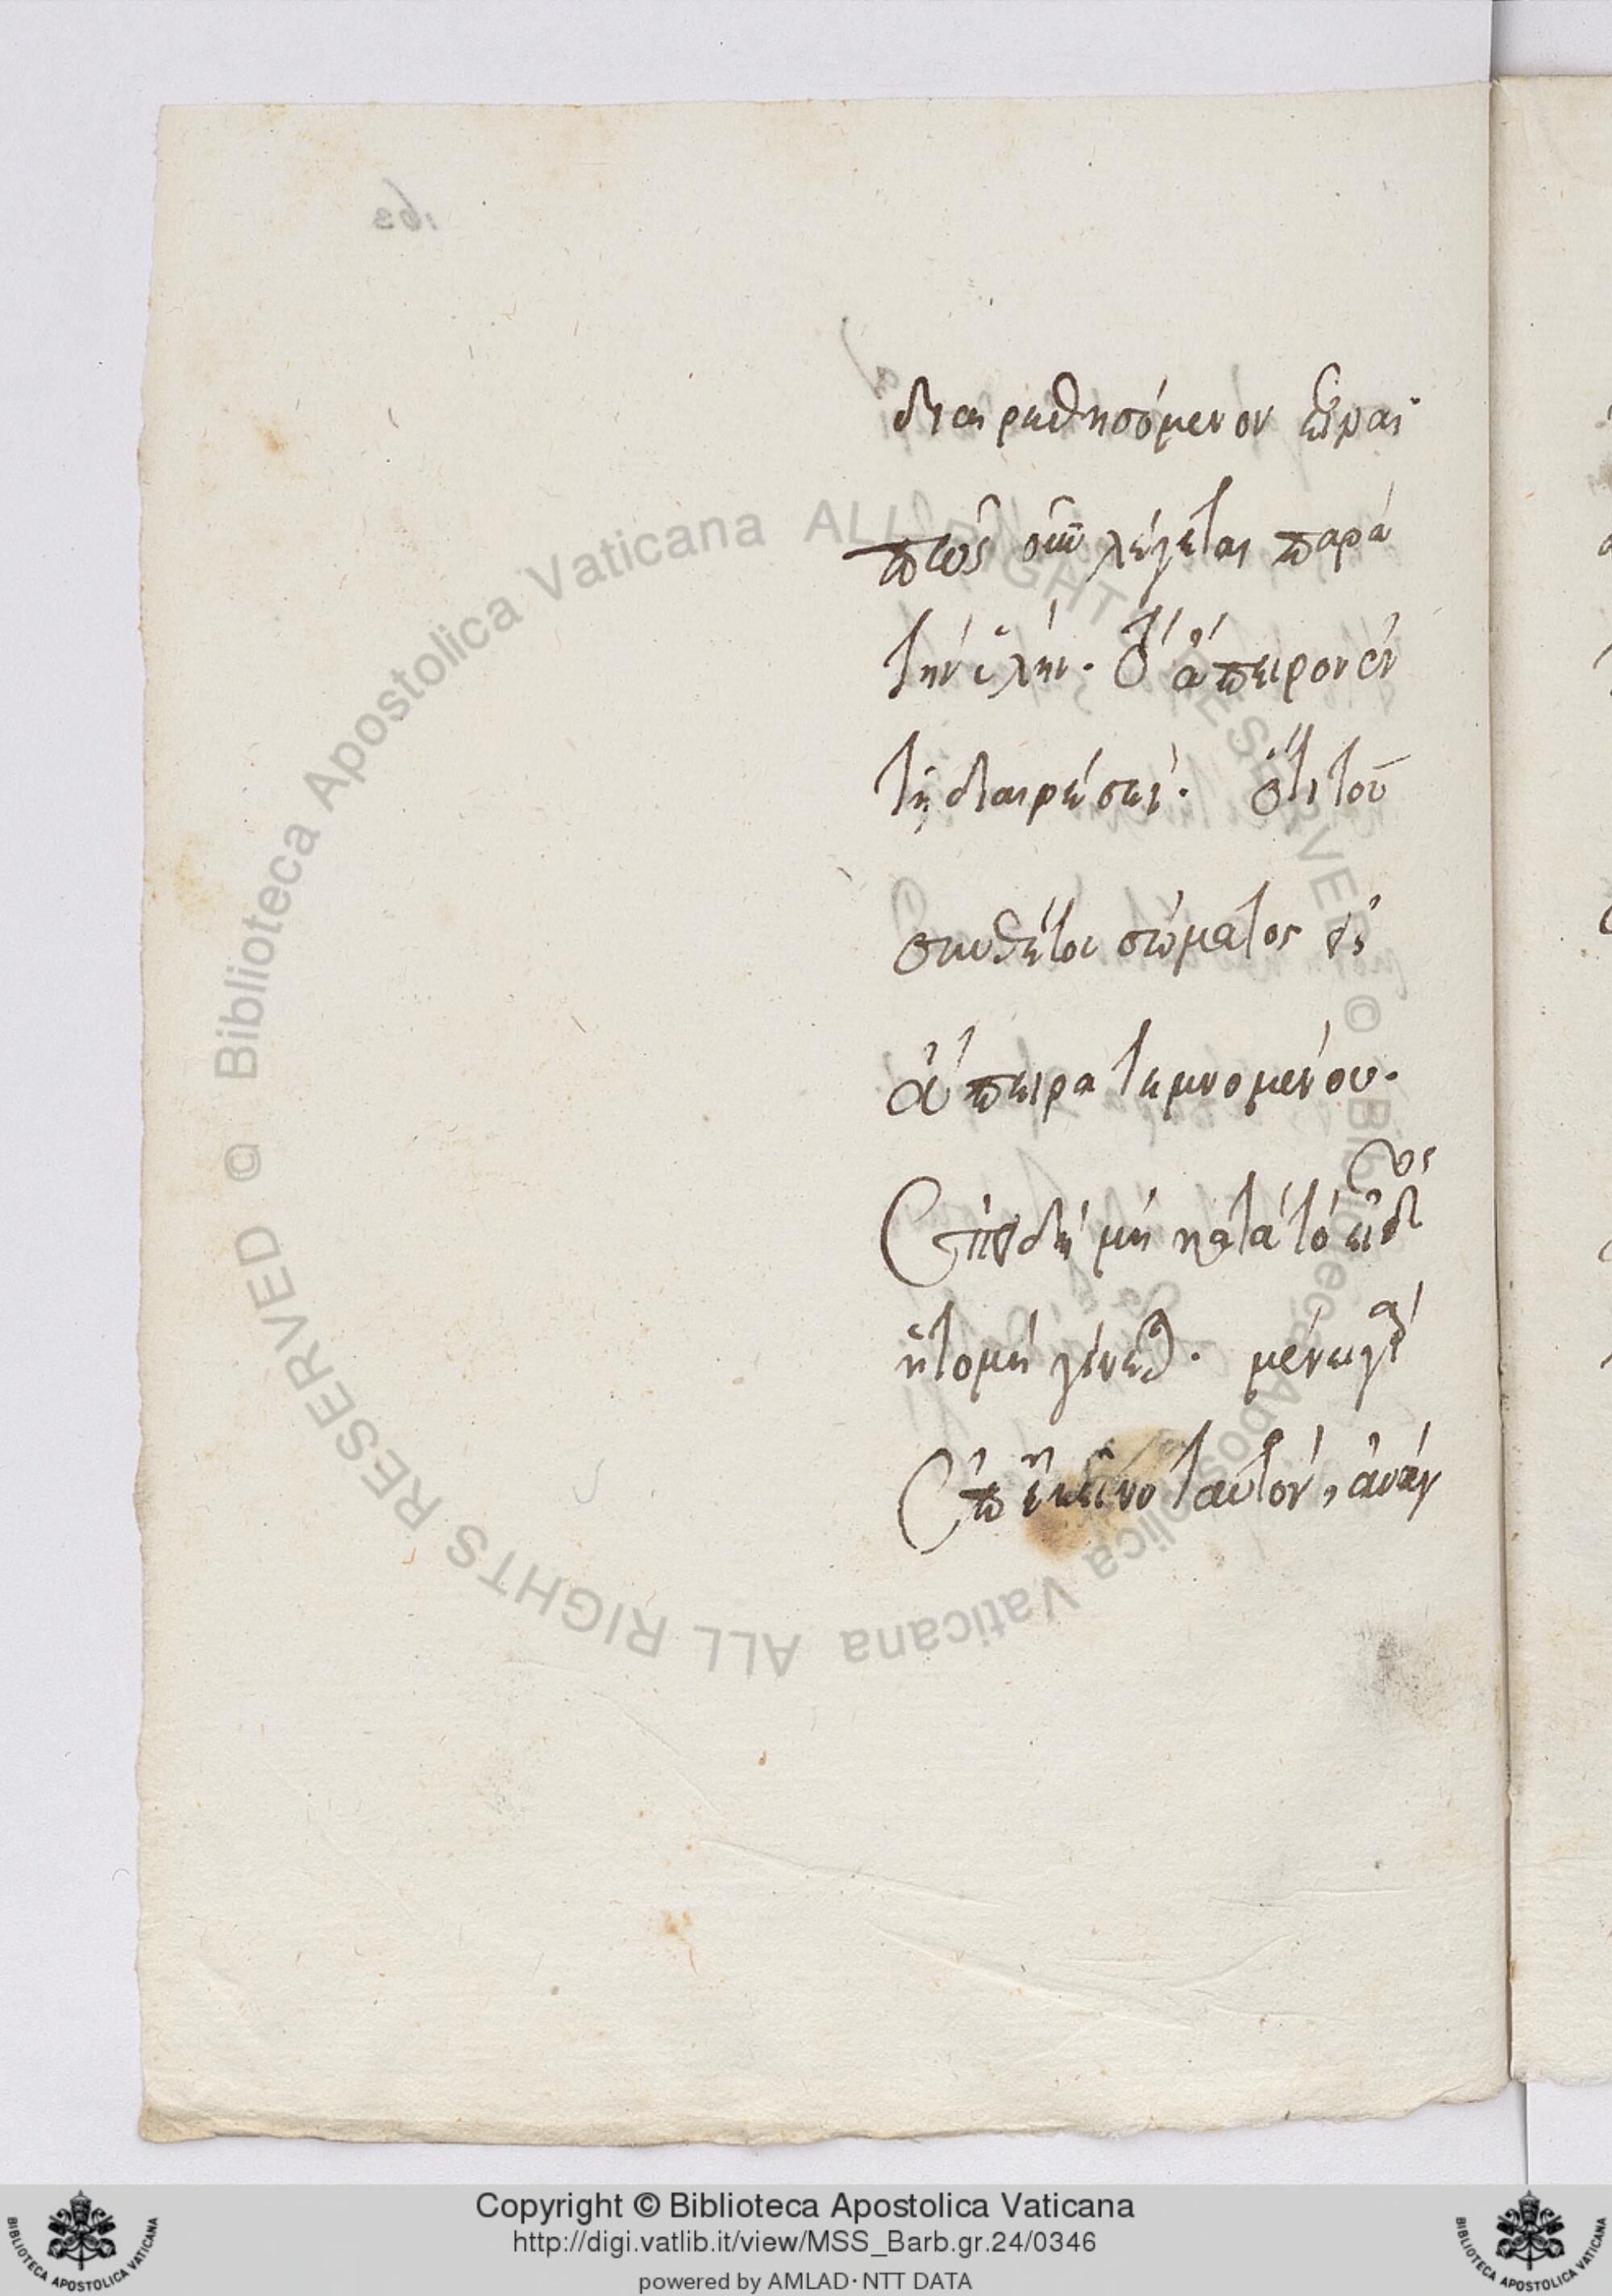 διαιρεθησόμενον εἶναι·
πῶς οὖν λέγεται παρὰ
τὴν ὕλην· τὸ ἄπειρον ἐν
τῇ διαιρέσει· ὅτι τοῦ
συνθέτου σώματος εἰς
ἄπειρα τεμνομένου·
ἐπειδὴ μὴ κατὰ τὸ εἶδος
ἡ τομὴ γίνεται· μένει γὰρ
ἐπ' ἐκεῖνο ταυτὸν, ἀνάγ
Copyright © Biblioteca Apostolica Vaticana
http://digi.vatlib.it/view/MSS_Barb.gr.24/0346
powered by AMLAD · NTT DATA
BIBLIOTECA APOSTOLICA VATICANA
BIBLIOTECA APOSTOLICA VATICANA
© Biblioteca Apostolica Vaticana ALL RIGHTS RESERVED © Biblioteca Apostolica Vaticana ALL RIGHTS RESERVED